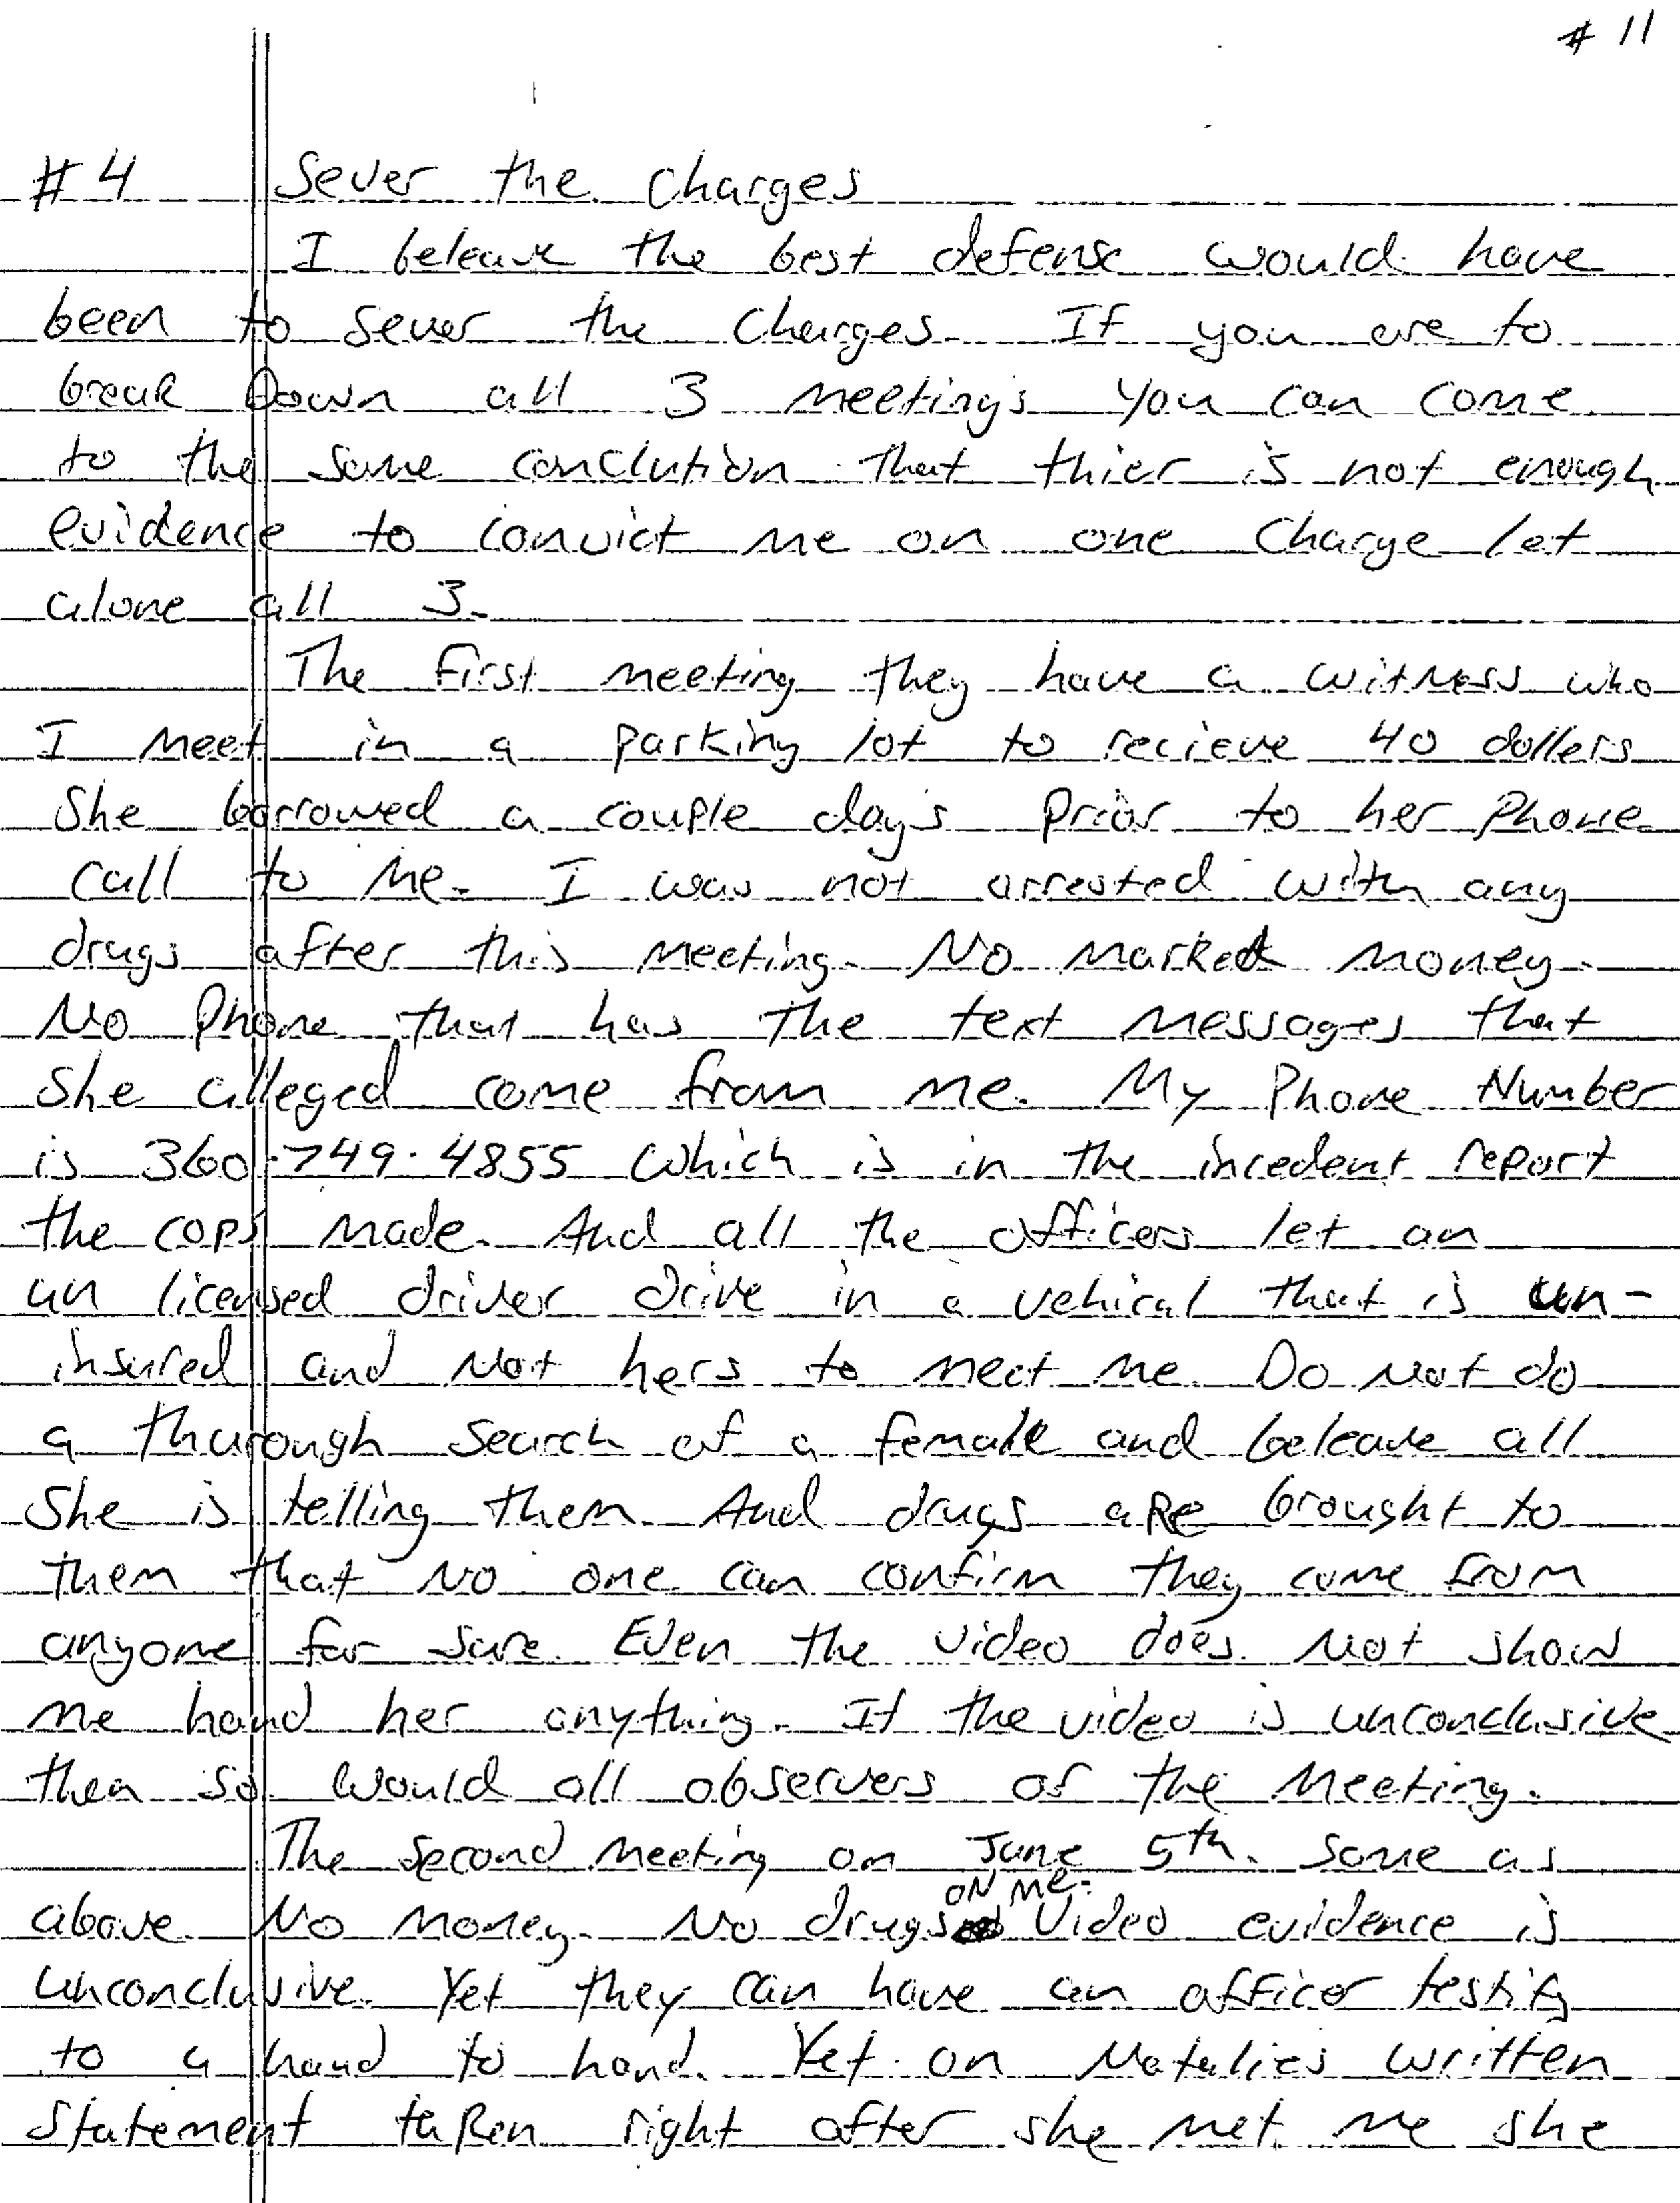 # 11
#4 Sever the Charges
I beleave the best defense would have
been to sever the Charges. If you are to
break Down all 3 meetings you can come
to the same conclution that thier is not enough
evidence to convict me on one Charge let
alone all 3.
The first meeting they have a witness who
I meet in a parking lot to recieve 40 dollers
She borrowed a couple days prior to her phone
call to me. I was not arrested with any
drugs after this meeting. No marked money.
No phone that has the text messages that
She alleged come from me. My Phone Number
is 360.749.4855 which is in the incedent report
the cops made. And all the officers let an
un licensed driver drive in a vehical that is un-
insured and not hers to meet me. Do not do
a thurough search of a female and beleave all
She is telling them. And drugs are brought to
them that no one can confirm they come from
anyone for sure. Even the video does not show
me hand her anything. If the video is unconclusive
then so would all observers of the meeting.
The second meeting on June 5th. Same as
above No money. No drugs on me. Video evidence is
unconclusive. Yet they can have an officer testify
to a hand to hand. Yet on Natalies written
Statement taken right after she met me she